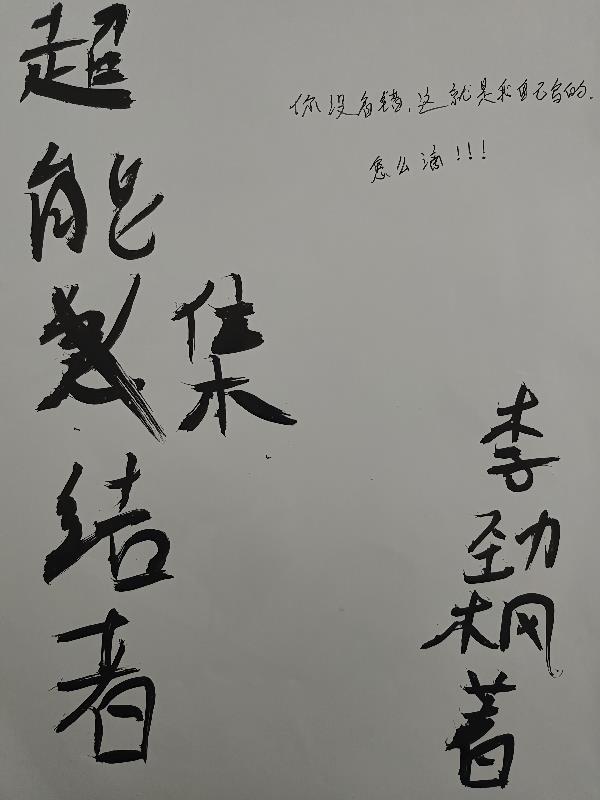 超能集结者
你没有错,这就是我自己写的.
怎么滴!!!
李劲枫著